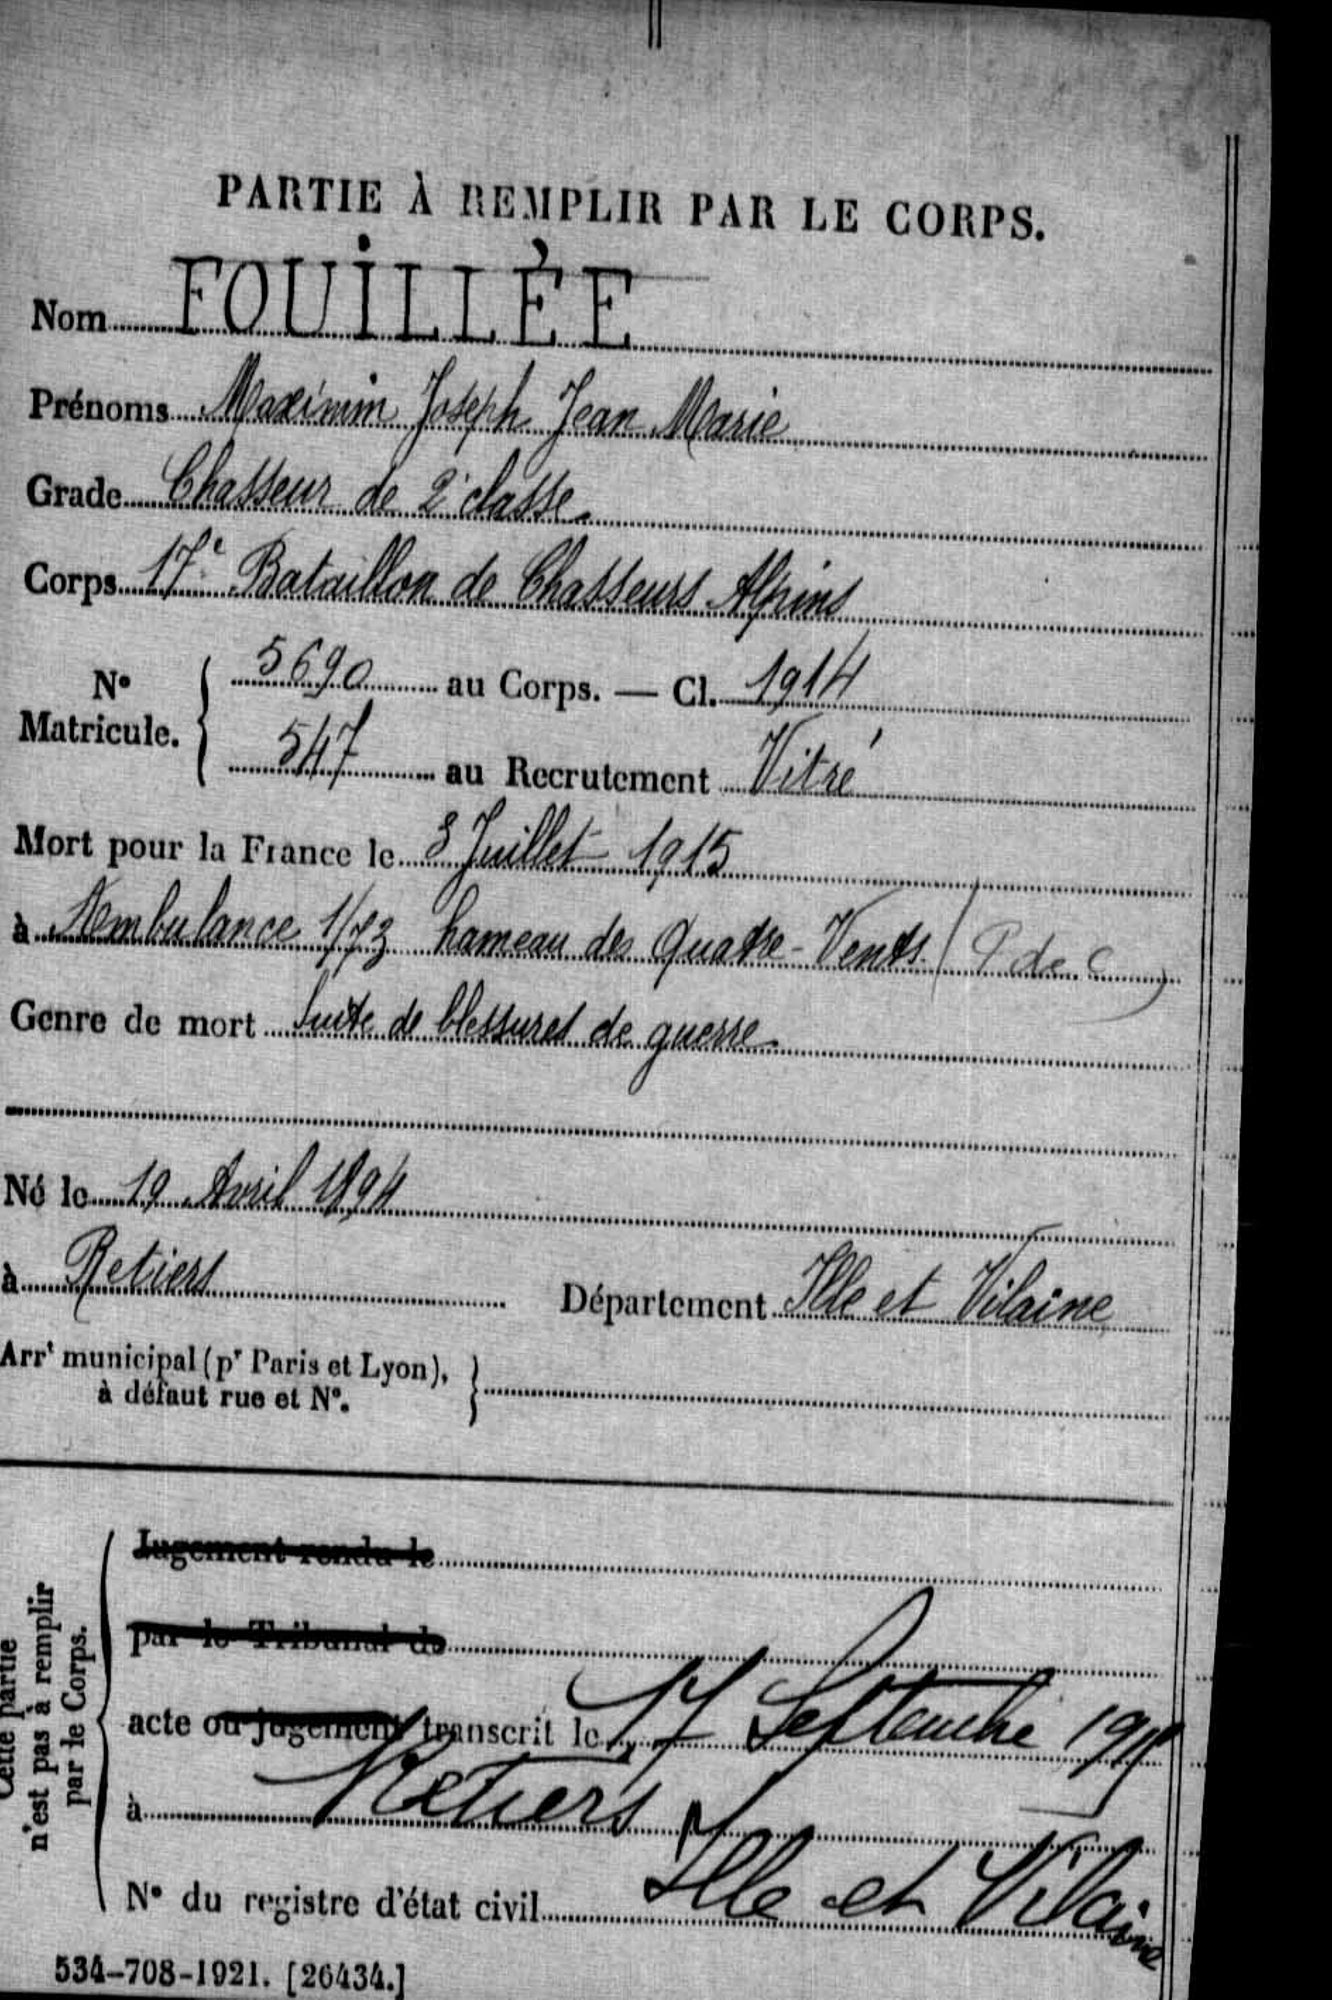 PARTIE À REMPLIR PAR LE CORPS.
Nom FOUILLÉE
Prénoms Maximin Joseph Jean Marie
Grade Chasseur de 2e classe
Corps 17e Bataillon de Chasseurs Alpins
N° Matricule. { 5690 au Corps. — Cl. 1914
547 au Recrutement Vitré
Mort pour la France le 3 Juillet 1915
à Ambulance 1/73 hameau des Quatre-Vents (P de C)
Genre de mort Suite de blessures de guerre
Né le 19 Avril 1894
à Retiers Département Ille et Vilaine
Arrt municipal (pr Paris et Lyon),
à défaut rue et N°.
Cette partie
n'est pas à remplir
par le Corps.
Jugement rendu le
par le Tribunal de
acte ou jugement transcrit le 17 Septembre
à Retiers
N° du registre d'état civil Ille et Vilaine
534-708-1921. [26434.]